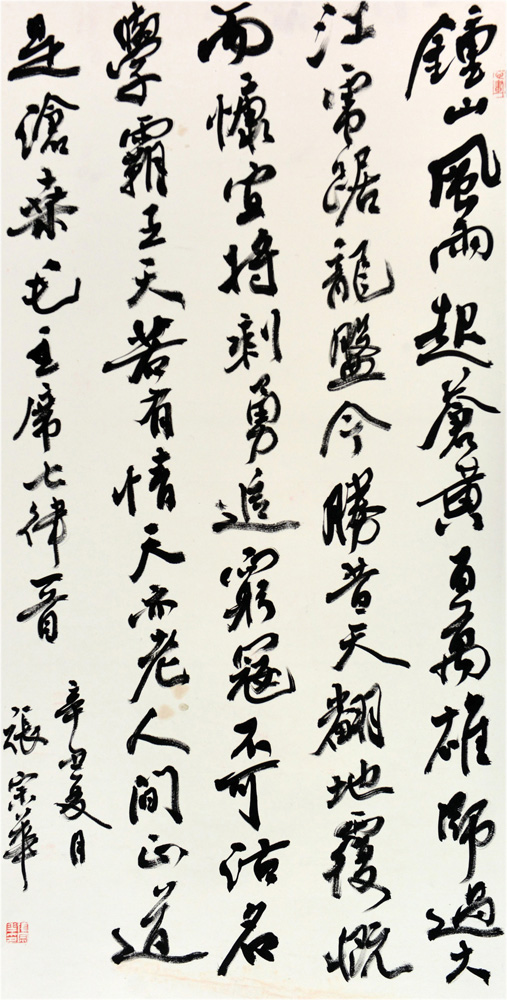 鐘山風雨起蒼黄百萬雄師過大
江虎踞龍盤今勝昔天翻地覆慨
而慷宜將剩勇追窮寇不可沽名
學霸王天若有情天亦老人間正道
是滄桑毛主席七律一首
辛丑夏月
張宗華